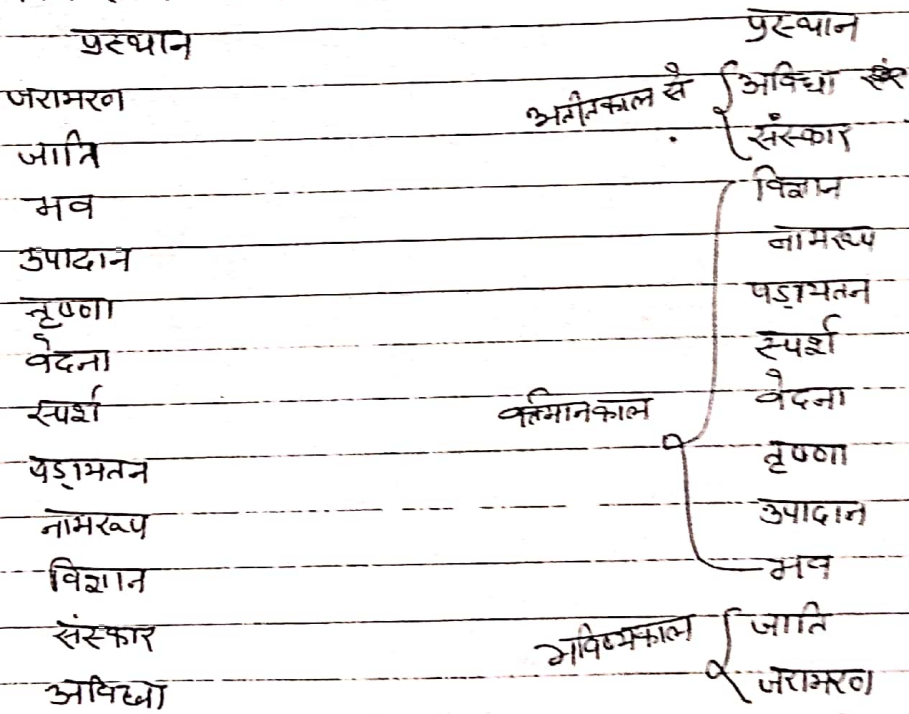 प्रस्थान
जरामरण
जाति
भव
उपादान
तृष्णा
वेदना
स्पर्श
षड़ायतन
नामरूप
विज्ञान
संस्कार
अविद्या
प्रस्थान
अतीतकाल से
अविद्या
संस्कार
वर्तमानकाल
विज्ञान
नामरूप
षड़ायतन
स्पर्श
वेदना
तृष्णा
उपादान
भव
भविष्यकाल
जाति
जरामरण